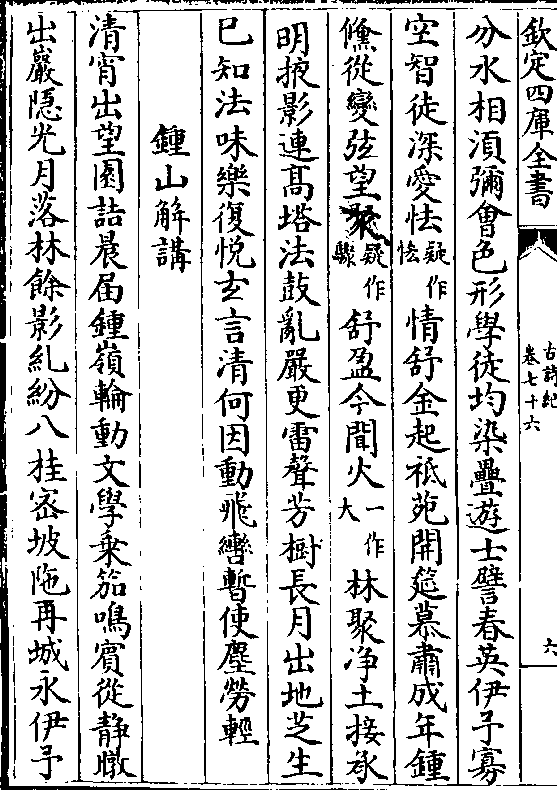 欽定四庫全書
古詩紀
卷七十六
六
分水相湏彌會色形學徒均染疊遊士譬春英伊予寡
空智徒深愛怯疑作恡情舒金起祗苑開筵慕肅成年鍾
儵從變弦望聚疑作驟舒盈今聞火一作大林聚淨土接承
明掖影連髙塔法鼓亂嚴更雷聲芳樹長月出地芝生
已知法味樂復悦玄言清何因動飛轡暫使塵勞輕
鍾山解講
清宵出望園詰晨届鍾嶺輪動文學乗笳鳴賓從静暾
出巖隠光月落林餘影糺紛八桂宻坡陁再城永伊予